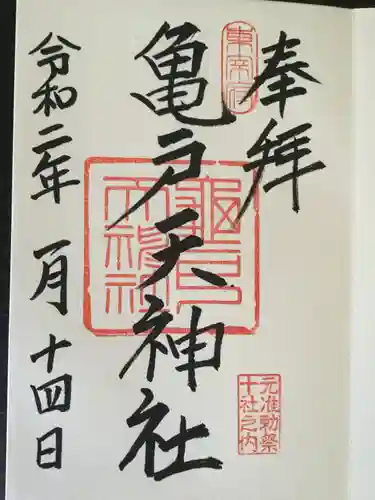 奉拝
東宰府
亀戸天神社
亀戸天神社
元准勅祭
十社之内
令和二年 一月 十四日